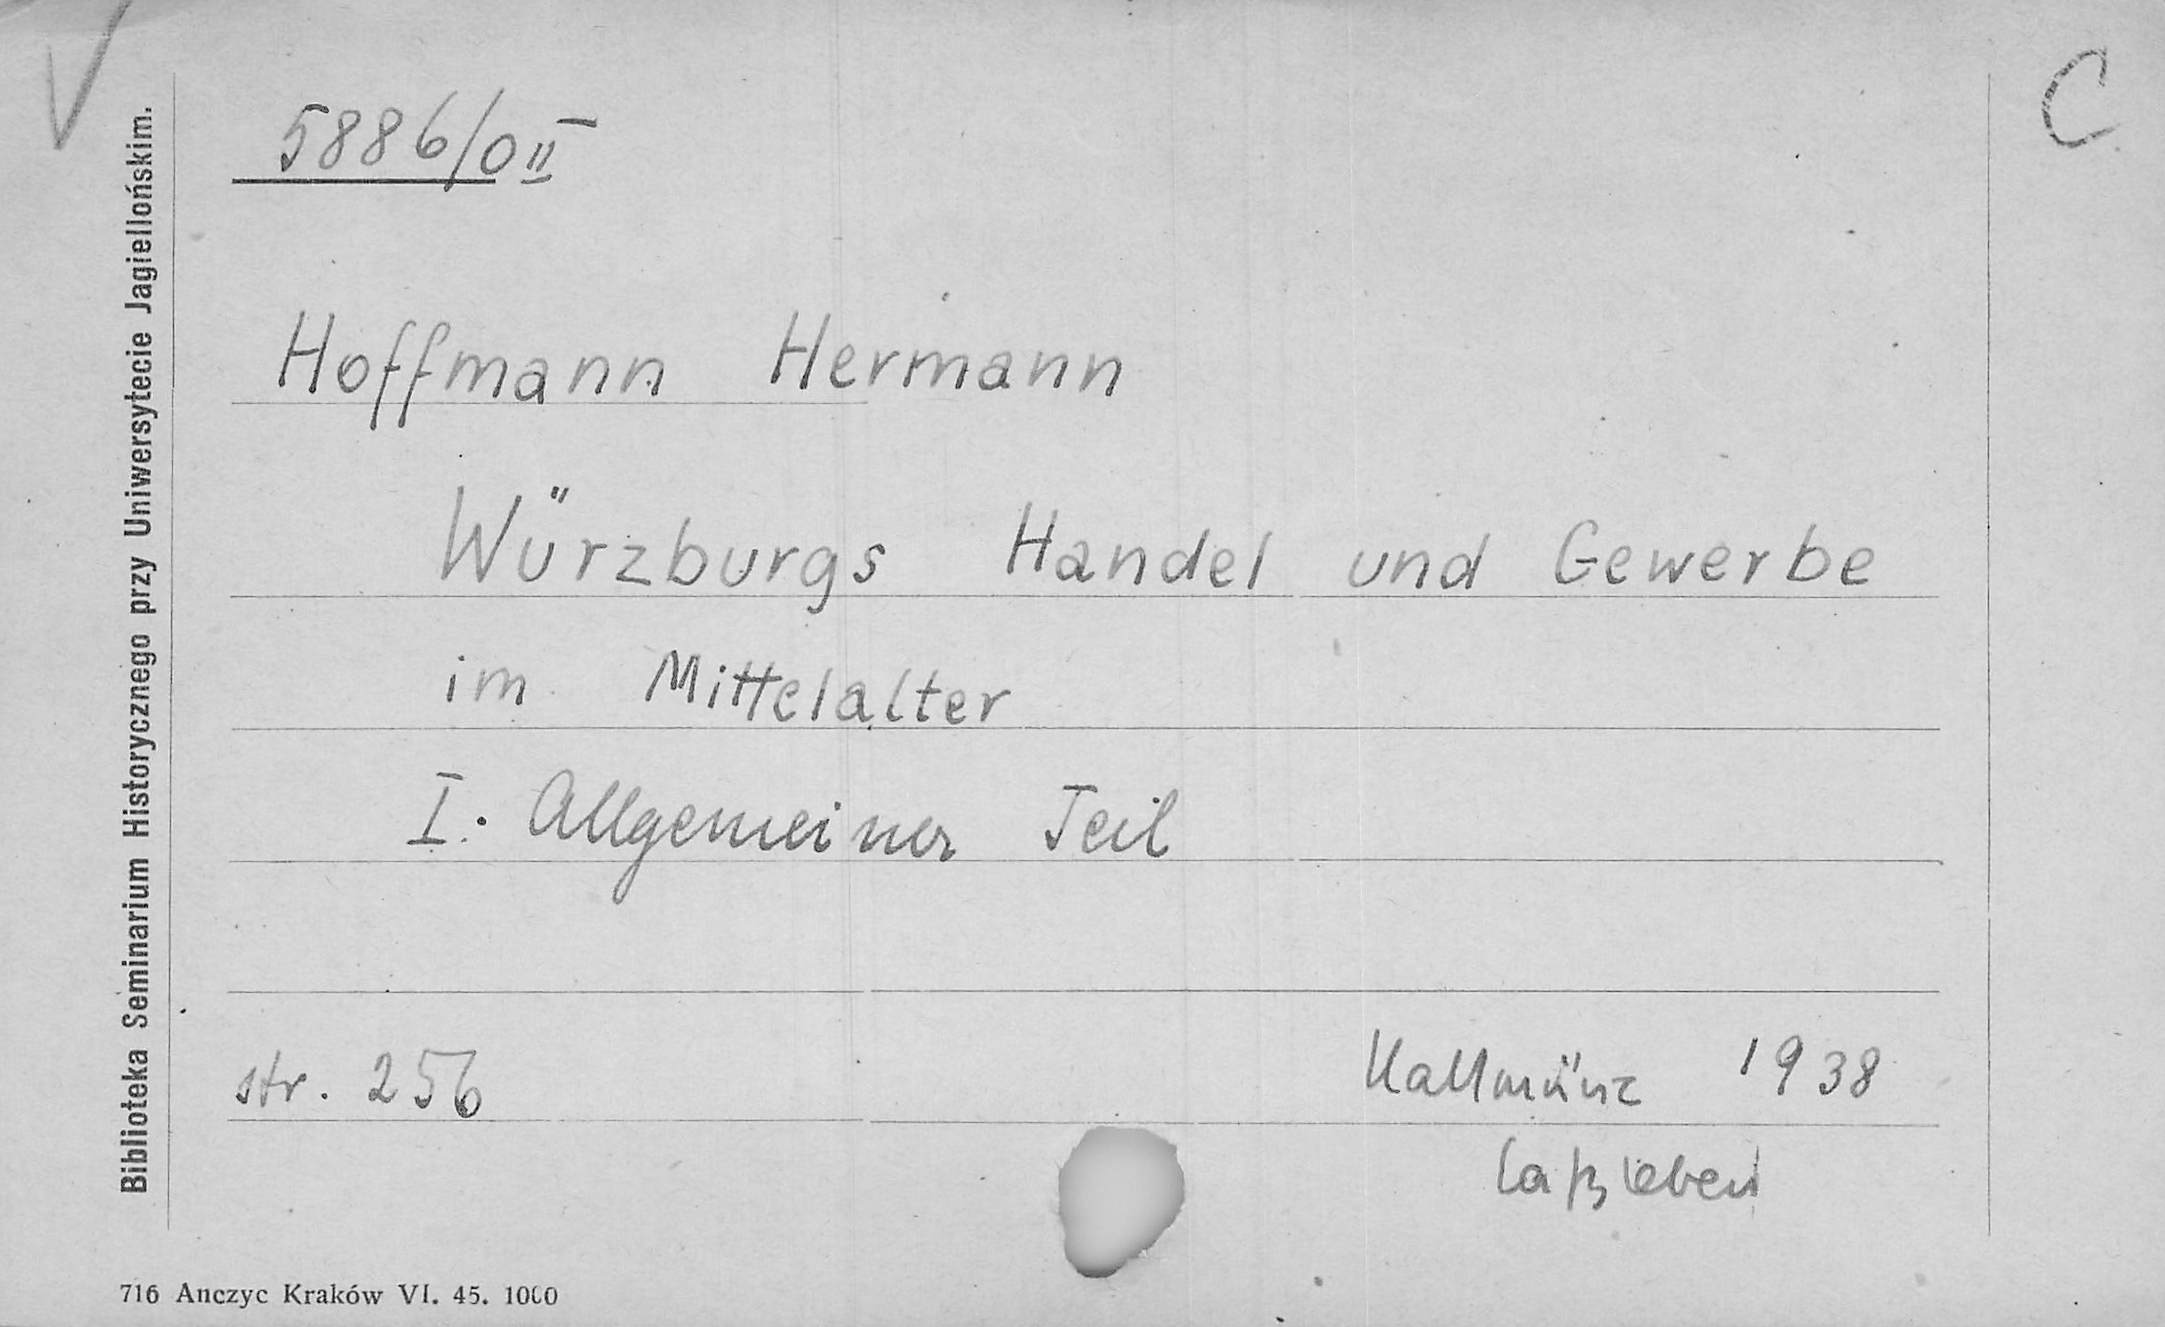 V
C
5886/0 II
Hoffmann Hermann
Würzburgs Handel und Gewerbe
im Mittelalter
I. Allgemeiner Teil
str. 256
Kallmünz 1938
Laßleben
Biblioteka Seminarium Historycznego przy Uniwersytecie Jagiellońskim.
716 Anczyc Kraków VI. 45. 1000